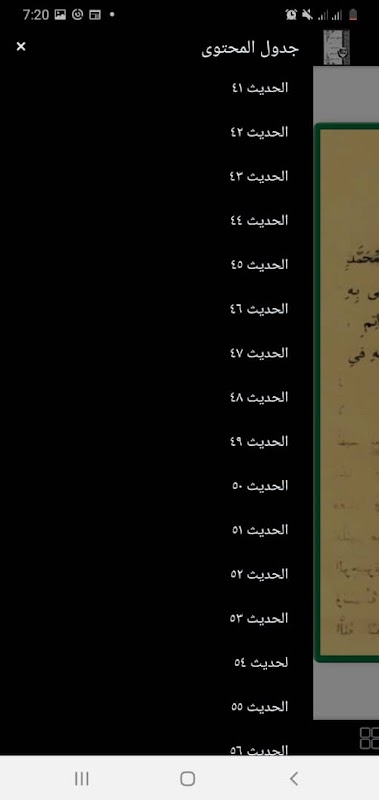 7:20
جدول المحتوى
×
الحديث ٤١
الحديث ٤٢
الحديث ٤٣
الحديث ٤٤
الحديث ٤٥
الحديث ٤٦
الحديث ٤٧
الحديث ٤٨
الحديث ٤٩
الحديث ٥٠
الحديث ٥١
الحديث ٥٢
الحديث ٥٣
لحديث ٥٤
الحديث ٥٥
الحديث ٥٦
بِهِ
فِي